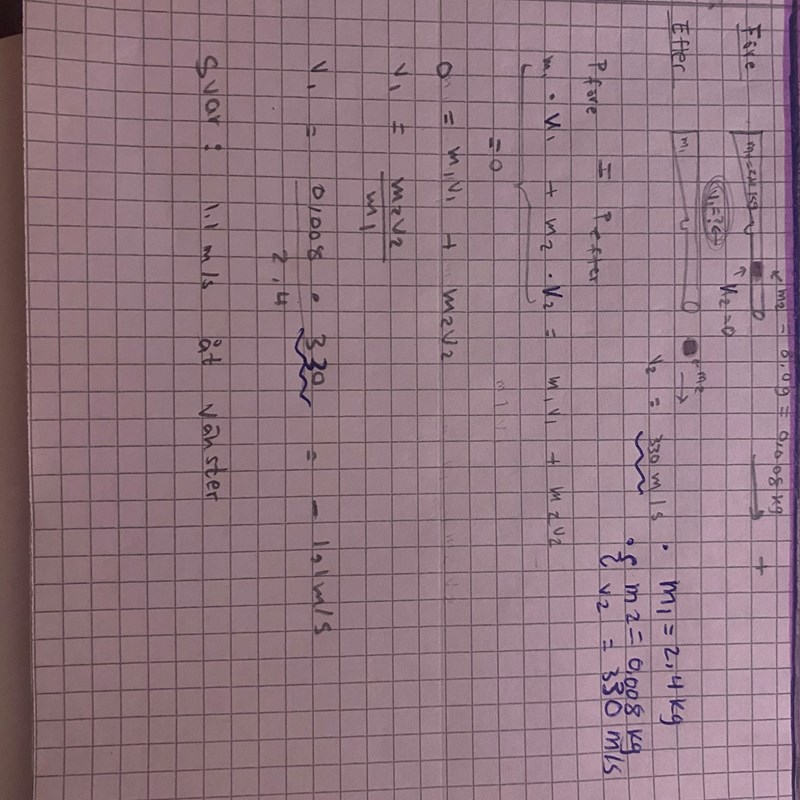 m2 = 8,0g = 0,008 kg
Före m1=2,4 kg +
V2=0
Efter m1 m2
V2 = 330 m/s
• m1 = 2,4 kg
• { m2 = 0,008 kg
{ V2 = 330 m/s
Pföre = Pefter
m1 · V1 + m2 · V2 = m1V1 + m2V2
=0
0 = m1V1 + m2V2
V1 = m2V2 / m1
V1 = 0,008 · 330 / 2,4 = -1,1 m/s
Svar: 1,1 m/s åt vänster